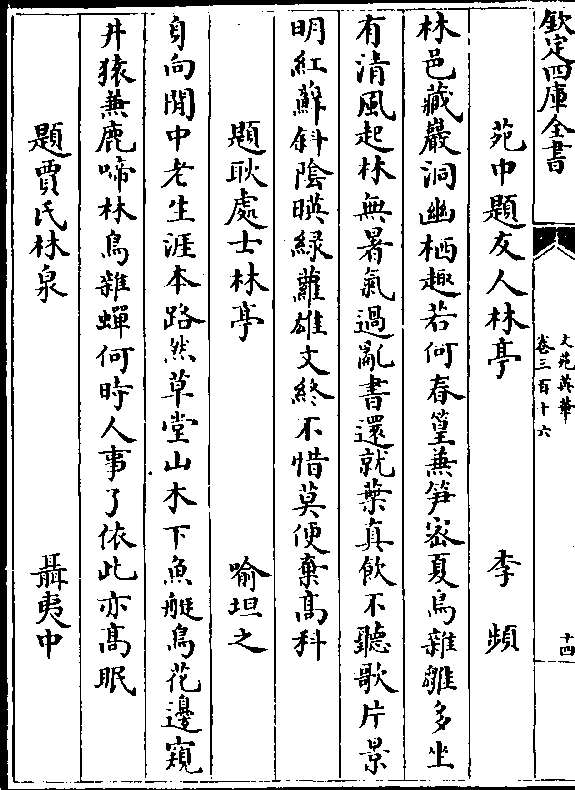 欽定四庫全書
文苑英華
卷三百十六
十四
苑中題友人林亭 李頻
林邑藏巖洞幽栖趣若何春篁兼笋密夏鳥雜雛多坐
有清風起林無暑氣過亂書還就葉真飲不聽歌片景
明紅蘚斜陰暎緑蘿雄文終不惜莫便棄髙科
題耿處士林亭 喻坦之
身向閒中老生涯本路然草堂山木下魚艇鳥花邊窺
井猿兼鹿啼林鳥雜蟬何時人事了依此亦髙眠
題賈氏林泉 聶夷中